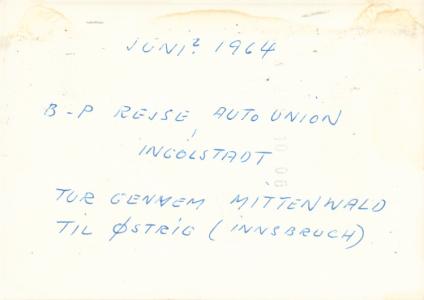 JUNI? 1964
B-P REJSE AUTO UNION
I
INGOLSTADT
TUR GENNEM MITTENWALD
TIL ØSTRIG (INNSBRUCH)